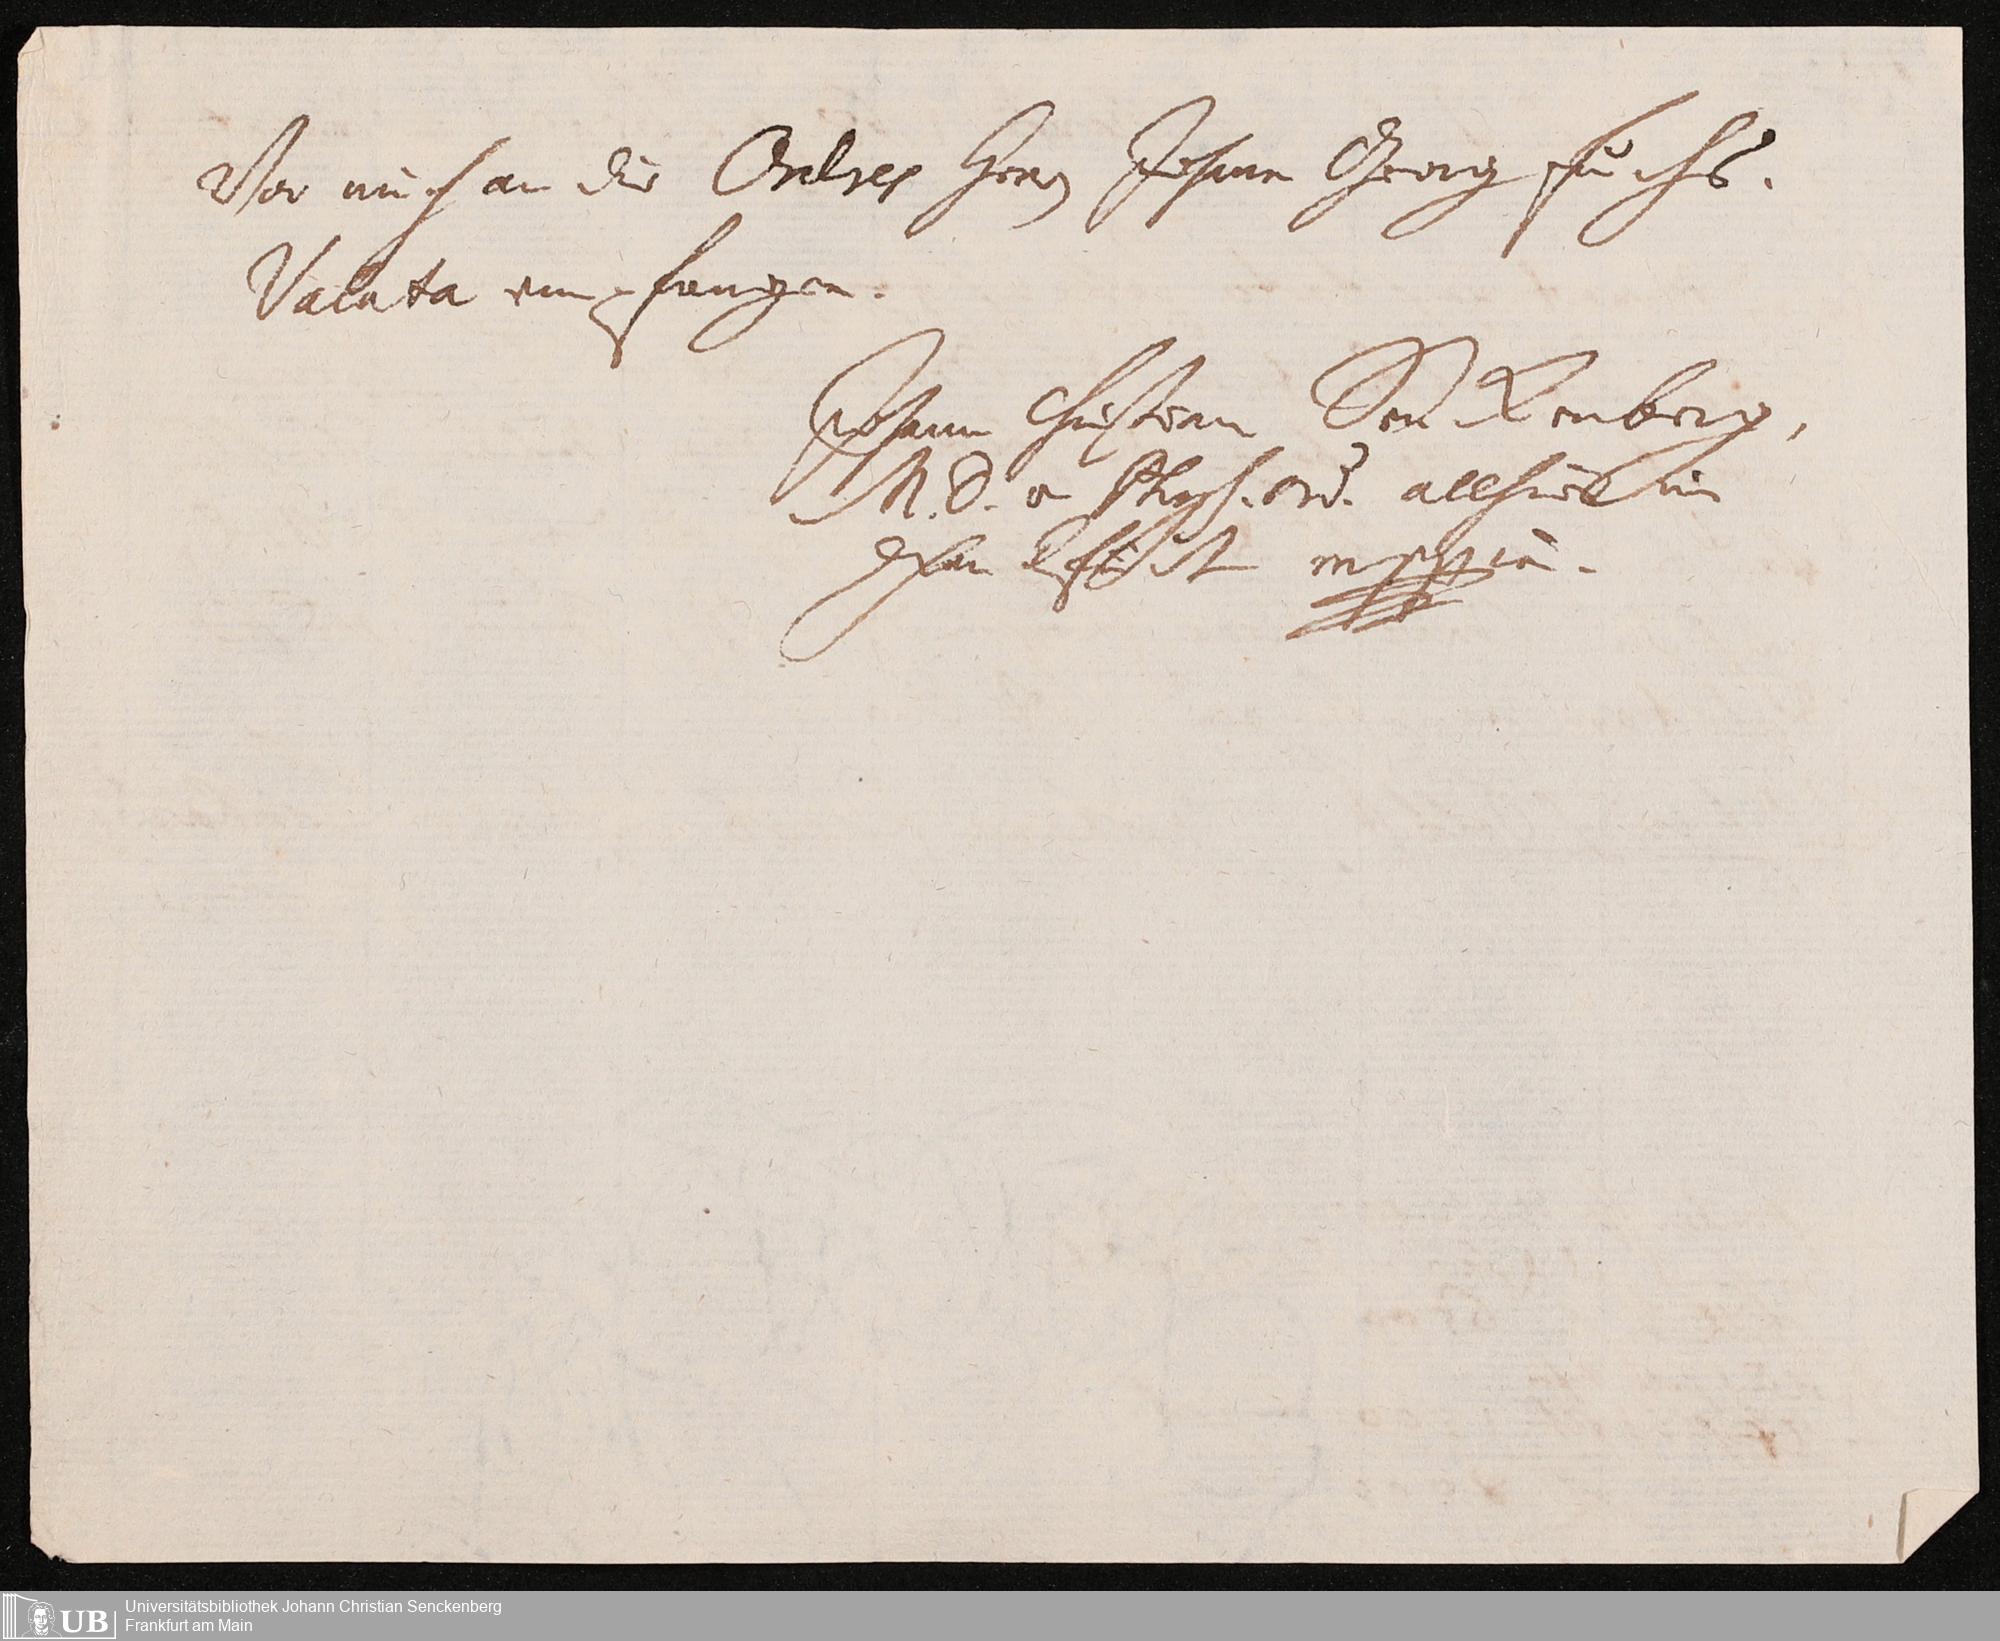 Vor mich an die Ordres Herrn Johann Georg Fuchs.
Valuta empfangen.
Johann Christian Senckenberg,
M. D. u Phys. ord. allhier in
mppria.
UB
Universitätsbibliothek Johann Christian Senckenberg
Frankfurt am Main